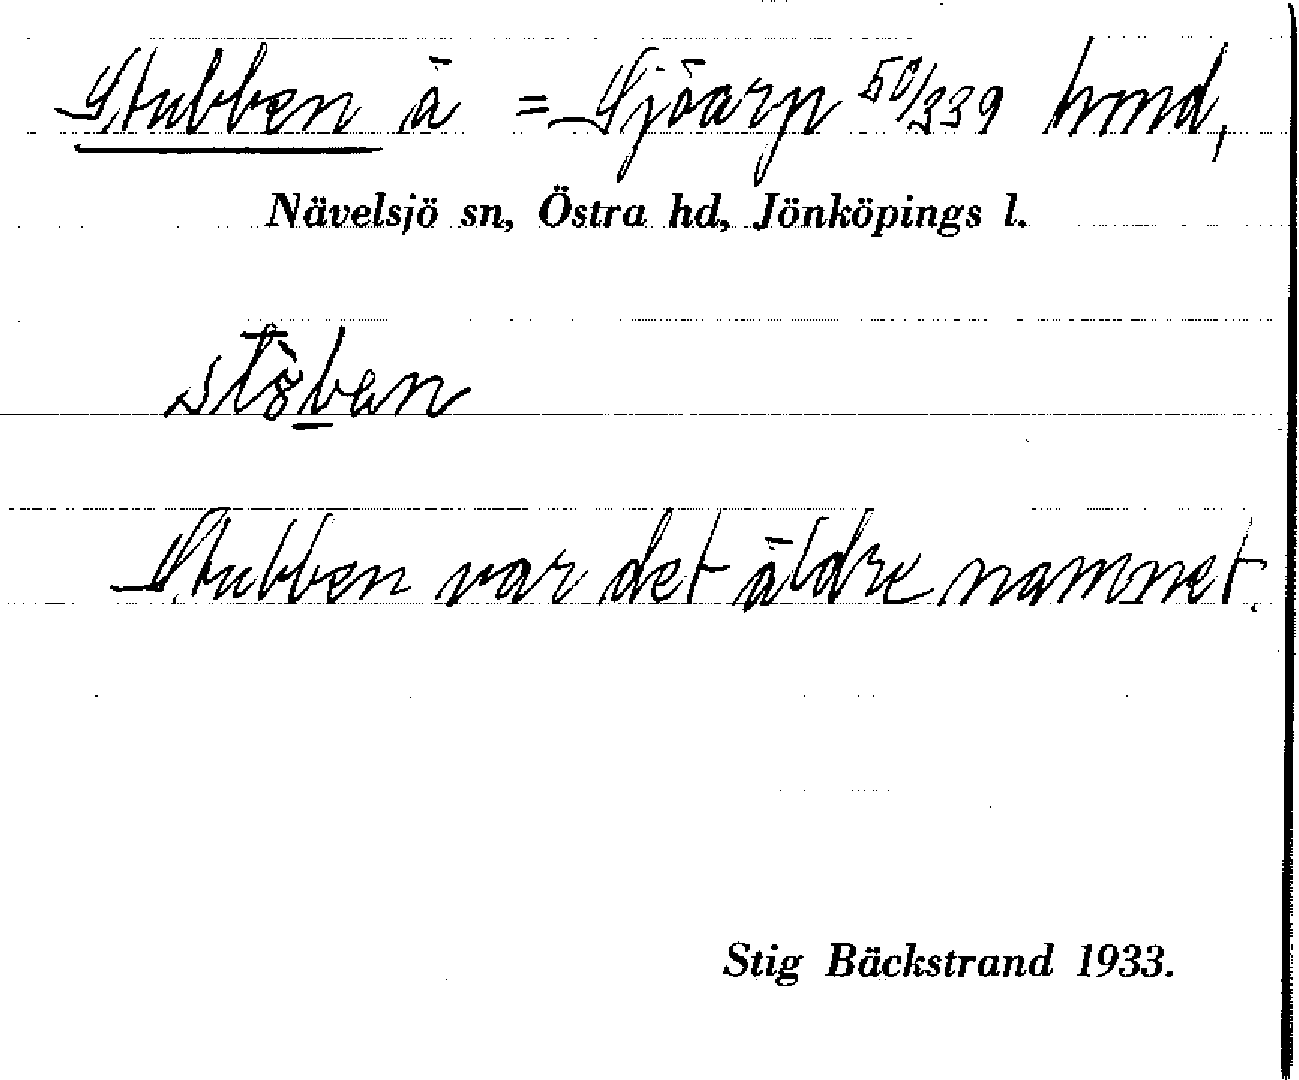 Stubben ä = Sjöarp 50/339 hmd,
Nävelsjö sn, Östra hd, Jönköpings l.
Stubben var det äldre namnet.
Stig Bäckstrand 1933.